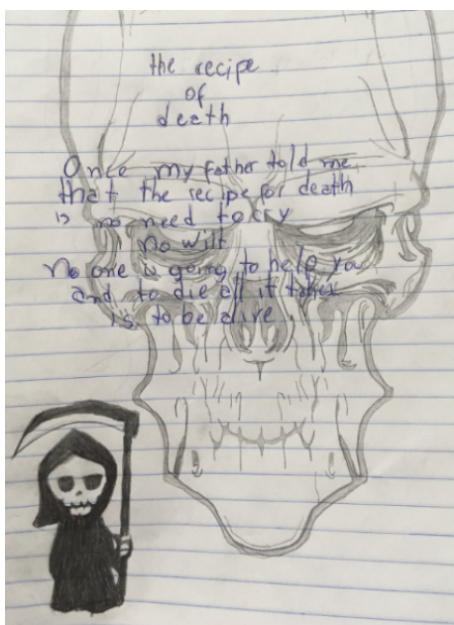 the recipe
of
death
Once my father told me
that the recipe for death
is no need to cry
no will
No one is going to help you
and to die all it takes
is to be alive